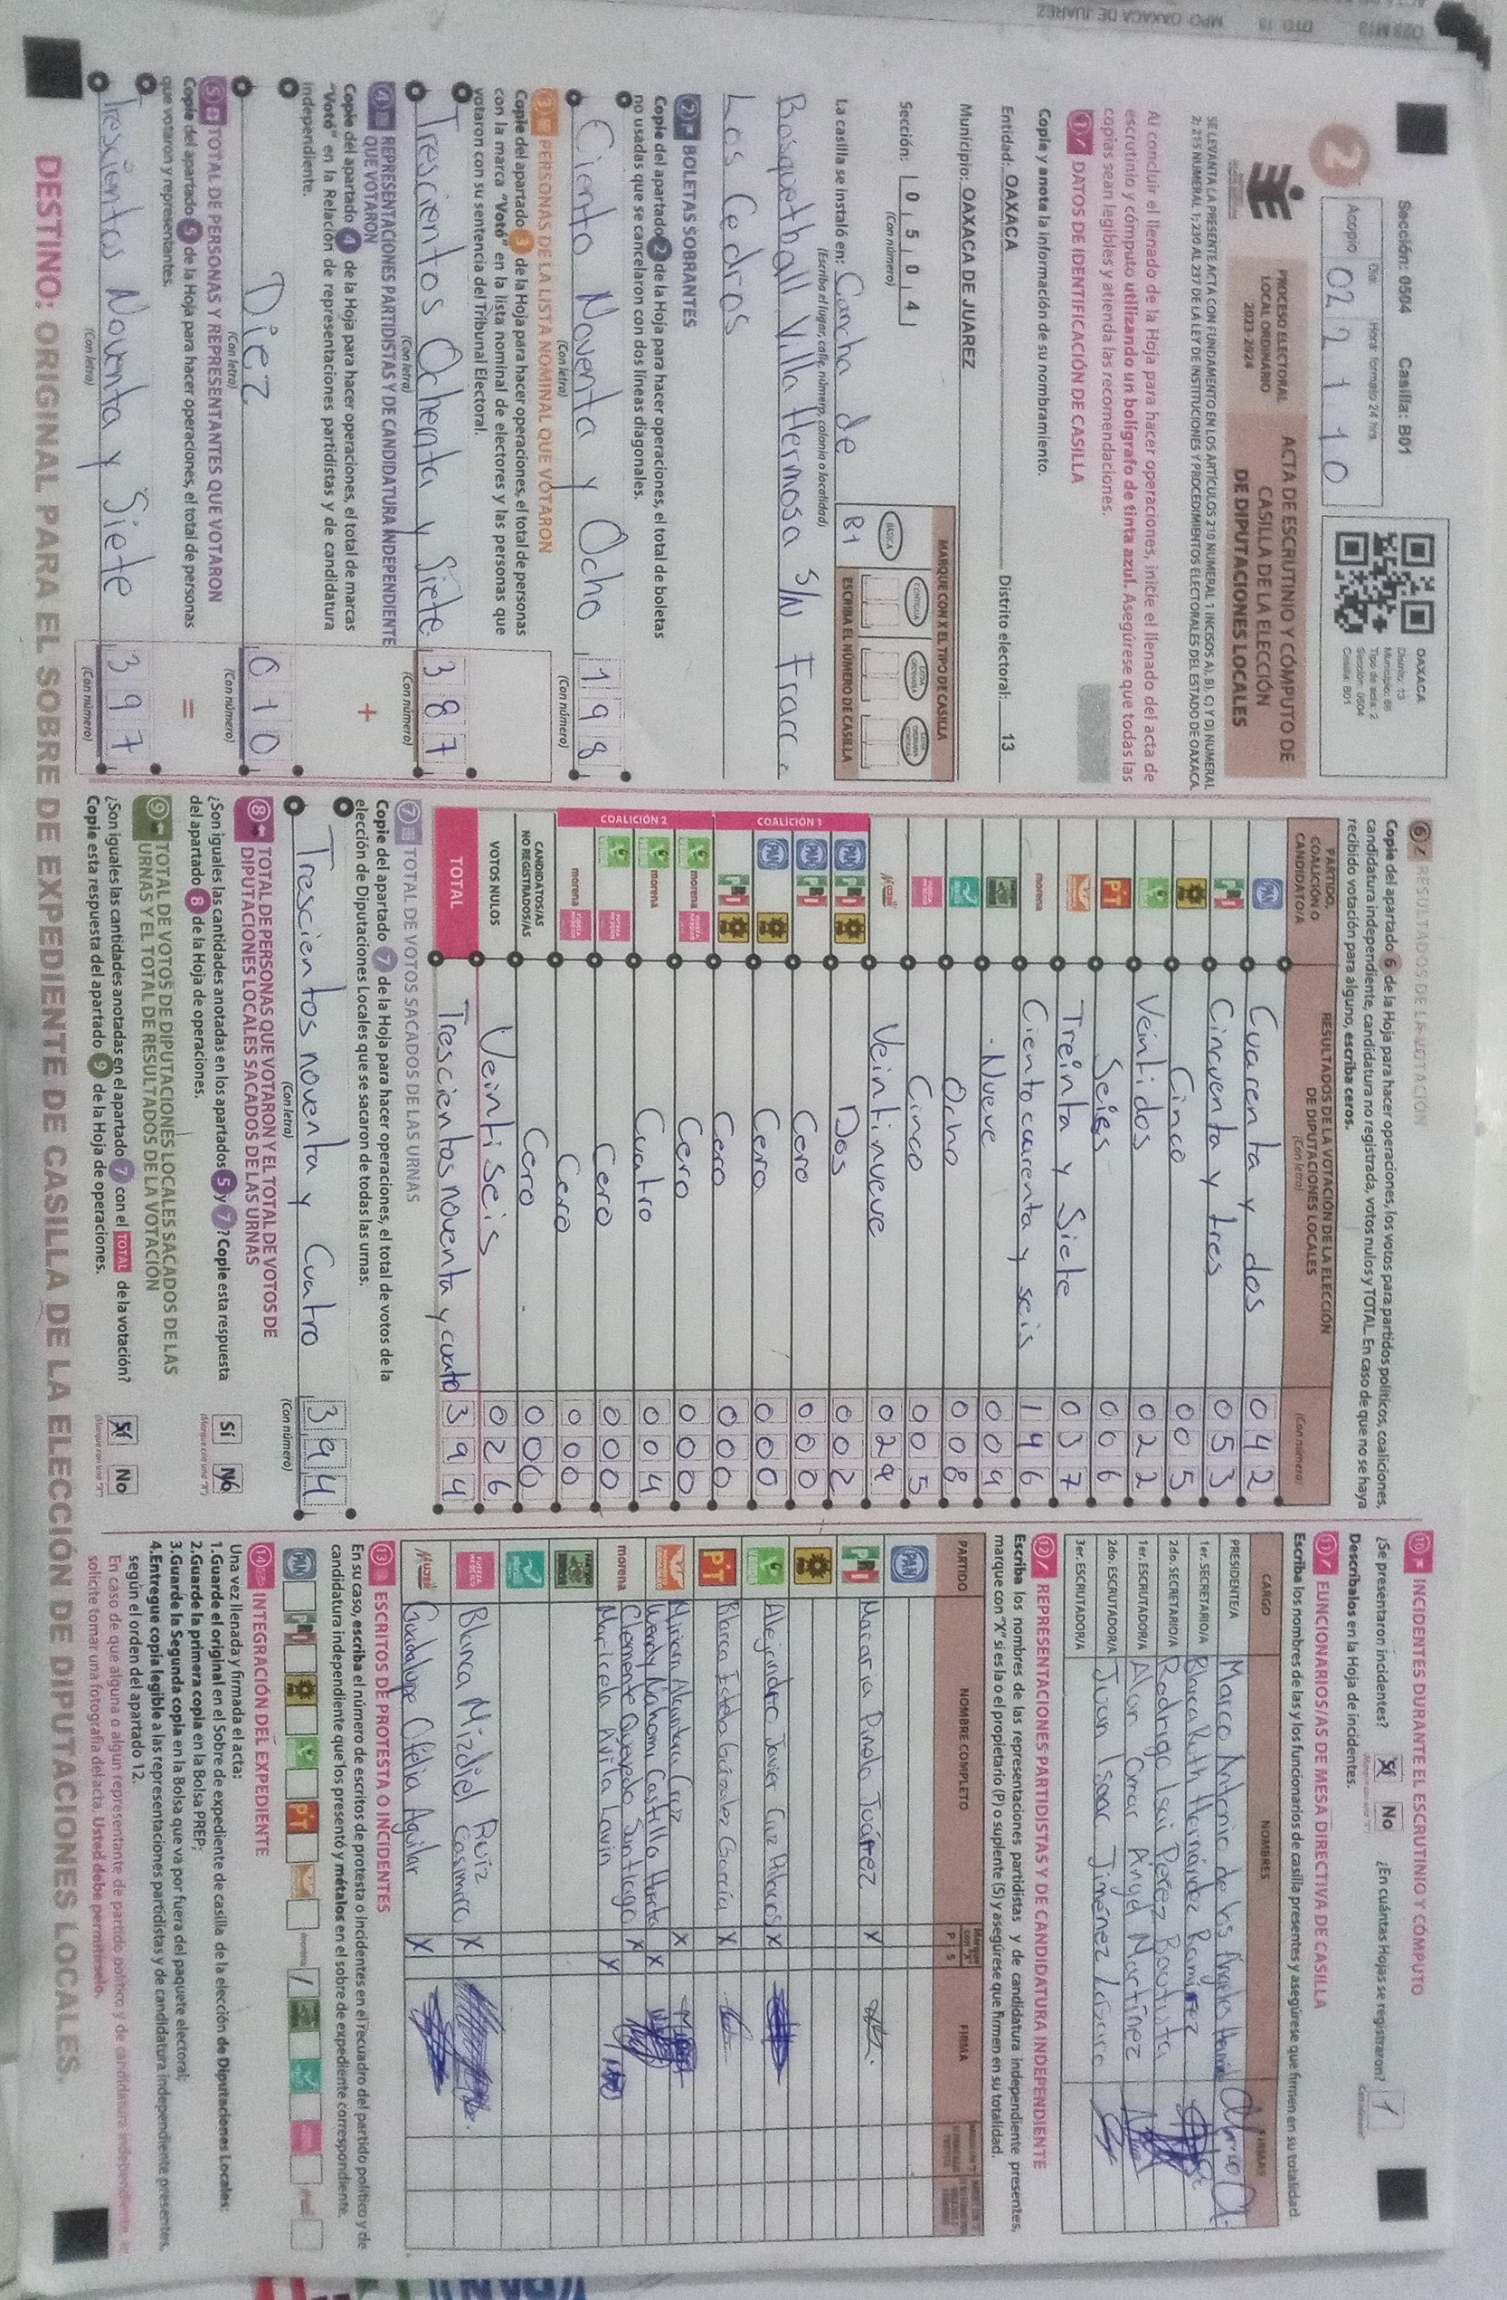 Sección: 0504 Casilla: B01
Día: Hora: formato 24 hrs
Acopio 02 21 10
OAXACA
Distrito: 13
Tipo de acta: 2
Sección: 0504
Casilla: B01
2
PROCESO ELECTORAL
LOCAL ORDINARIO
2023-2024
ACTA DE ESCRUTINIO Y CÓMPUTO DE
CASILLA DE LA ELECCIÓN
DE DIPUTACIONES LOCALES
SE LEVANTA LA PRESENTE ACTA CON FUNDAMENTO EN LOS ARTÍCULOS 219 NUMERAL 1 INCISOS A), B), C) Y D) NUMERAL
2; 215 NUMERAL 1; 230 AL 237 DE LA LEY DE INSTITUCIONES Y PROCEDIMIENTOS ELECTORALES DEL ESTADO DE OAXACA.
Al concluir el llenado de la Hoja para hacer operaciones, inicie el llenado del acta de
escrutinio y cómputo utilizando un bolígrafo de tinta azul. Asegúrese que todas las
copias sean legibles y atienda las recomendaciones.
1 DATOS DE IDENTIFICACIÓN DE CASILLA
Copie y anote la información de su nombramiento.
Entidad: OAXACA Distrito electoral: 13
Municipio: OAXACA DE JUAREZ
Sección: 0 5 0 4
(Con número)
MARQUE CON X EL TIPO DE CASILLA
BÁSICA
CONTIGUA
B1
ESCRIBA EL NÚMERO DE CASILLA
La casilla se instaló en: Cancha de
(Escriba el lugar: calle, número, colonia o localidad)
Basquetball Villa Hermosa S/N Fracc
Los Cedros
2 BOLETAS SOBRANTES
Copie del apartado 2 de la Hoja para hacer operaciones, el total de boletas
no usadas que se cancelaron con dos líneas diagonales.
Ciento Noventa y Ocho 198
(Con letra) (Con número)
3 PERSONAS DE LA LISTA NOMINAL QUE VOTARON
Copie del apartado 3 de la Hoja para hacer operaciones, el total de personas
con la marca "Votó" en la lista nominal de electores y las personas que
votaron con su sentencia del Tribunal Electoral.
Trescientos Ochenta y Siete 387
(Con letra) (Con número)
4 REPRESENTACIONES PARTIDISTAS Y DE CANDIDATURA INDEPENDIENTE
QUE VOTARON
Copie del apartado 4 de la Hoja para hacer operaciones, el total de marcas
"Votó" en la Relación de representaciones partidistas y de candidatura
independiente.
+
Diez 010
(Con letra) (Con número)
5 TOTAL DE PERSONAS Y REPRESENTANTES QUE VOTARON
Copie del apartado 5 de la Hoja para hacer operaciones, el total de personas
que votaron y representantes.
=
Trescientos Noventa y Siete 397
(Con letra) (Con número)
6 RESULTADOS DE LA VOTACIÓN
Copie del apartado 6 de la Hoja para hacer operaciones, los votos para partidos políticos, coaliciones,
candidatura independiente, candidatura no registrada, votos nulos y TOTAL. En caso de que no se haya
recibido votación para alguno, escriba ceros.
PARTIDO, COALICIÓN O CANDIDATO/A
RESULTADOS DE LA VOTACIÓN DE LA ELECCIÓN DE DIPUTACIONES LOCALES
(Con letra) (Con número)
PAN Cuarenta y dos 042
PRI Cincuenta y tres 053
Cinco 005
Veintidos 022
PT Seies 006
Treinta y Siete 037
morena Ciento cuarenta y seis 146
Nueve 009
Ocho 008
Cinco 005
Veintinueve 029
COALICIÓN 1
PAN PRI Dos 002
PAN PRI Cero 000
PAN Cero 000
PRI Cero 000
COALICIÓN 2
morena Cero 000
morena Cuatro 004
Cero 000
morena Cero 000
CANDIDATOS/AS NO REGISTRADOS/AS Cero 000
VOTOS NULOS Veintiseis 026
TOTAL Trescientos noventa y cuatro 394
7 TOTAL DE VOTOS SACADOS DE LAS URNAS
Copie del apartado 7 de la Hoja para hacer operaciones, el total de votos de la
elección de Diputaciones Locales que se sacaron de todas las urnas.
Trescientos noventa y Cuatro 394
(Con letra) (Con número)
8 TOTAL DE PERSONAS QUE VOTARON Y EL TOTAL DE VOTOS DE
DIPUTACIONES LOCALES SACADOS DE LAS URNAS
¿Son iguales las cantidades anotadas en los apartados 5 y 7? Copie esta respuesta
del apartado 8 de la Hoja de operaciones.
Sí No
9 TOTAL DE VOTOS DE DIPUTACIONES LOCALES SACADOS DE LAS
URNAS Y EL TOTAL DE RESULTADOS DE LA VOTACIÓN
¿Son iguales las cantidades anotadas en el apartado 7 con el TOTAL de la votación?
Copie esta respuesta del apartado 9 de la Hoja de operaciones.
Sí No
10 INCIDENTES DURANTE EL ESCRUTINIO Y CÓMPUTO
¿Se presentaron incidentes? Sí No ¿En cuántas Hojas se registraron? 1
Descríbalos en la Hoja de incidentes.
11 FUNCIONARIOS/AS DE MESA DIRECTIVA DE CASILLA
Escriba los nombres de las y los funcionarios de casilla presentes y asegúrese que firmen en su totalidad.
CARGO NOMBRES FIRMAS
PRESIDENTE/A Marco Antonio de los Angeles
1er. SECRETARIO/A Blanca Ruth Hernández Ramírez
2do. SECRETARIO/A Rodrigo Isai Perez Bautista
1er. ESCRUTADOR/A Alan Omar Angel Martínez
2do. ESCRUTADOR/A Juan Isaac Jiménez
3er. ESCRUTADOR/A
12 REPRESENTACIONES PARTIDISTAS Y DE CANDIDATURA INDEPENDIENTE
Escriba los nombres de las representaciones partidistas y de candidatura independiente presentes,
marque con "X" si es la o el propietario (P) o suplente (S) y asegúrese que firmen en su totalidad.
PARTIDO NOMBRE COMPLETO P S FIRMA
PAN
PRI Macaria Pinelo Juárrez X
Alejandro Javier Cruz X
PT Blanca Estela González García X
Miriam Alcantara Cruz X
Wendy Nahomi Castillo X
morena Clemente Quevedo Santiago X
Maricela Avila Lavin
Blanca Mizdiel Ruiz Casimiro X
Guadalupe Ofelia Aguilar X
13 ESCRITOS DE PROTESTA O INCIDENTES
En su caso, escriba el número de escritos de protesta o incidentes en el recuadro del partido político y de
candidatura independiente que los presentó y métalos en el sobre de expediente correspondiente.
14 INTEGRACIÓN DEL EXPEDIENTE
Una vez llenada y firmada el acta:
1.Guarde el original en el Sobre de expediente de casilla de la elección de Diputaciones Locales;
2.Guarde la primera copia en la Bolsa PREP;
3.Guarde la Segunda copia en la Bolsa que va por fuera del paquete electoral;
4.Entregue copia legible a las representaciones partidistas y de candidatura independiente presentes,
según el orden del apartado 12.
En caso de que alguna o algún representante de partido político y de candidatura independiente le
solicite tomar una fotografía del acta, Usted debe permitírselo.
DESTINO: ORIGINAL PARA EL SOBRE DE EXPEDIENTE DE CASILLA DE LA ELECCIÓN DE DIPUTACIONES LOCALES.